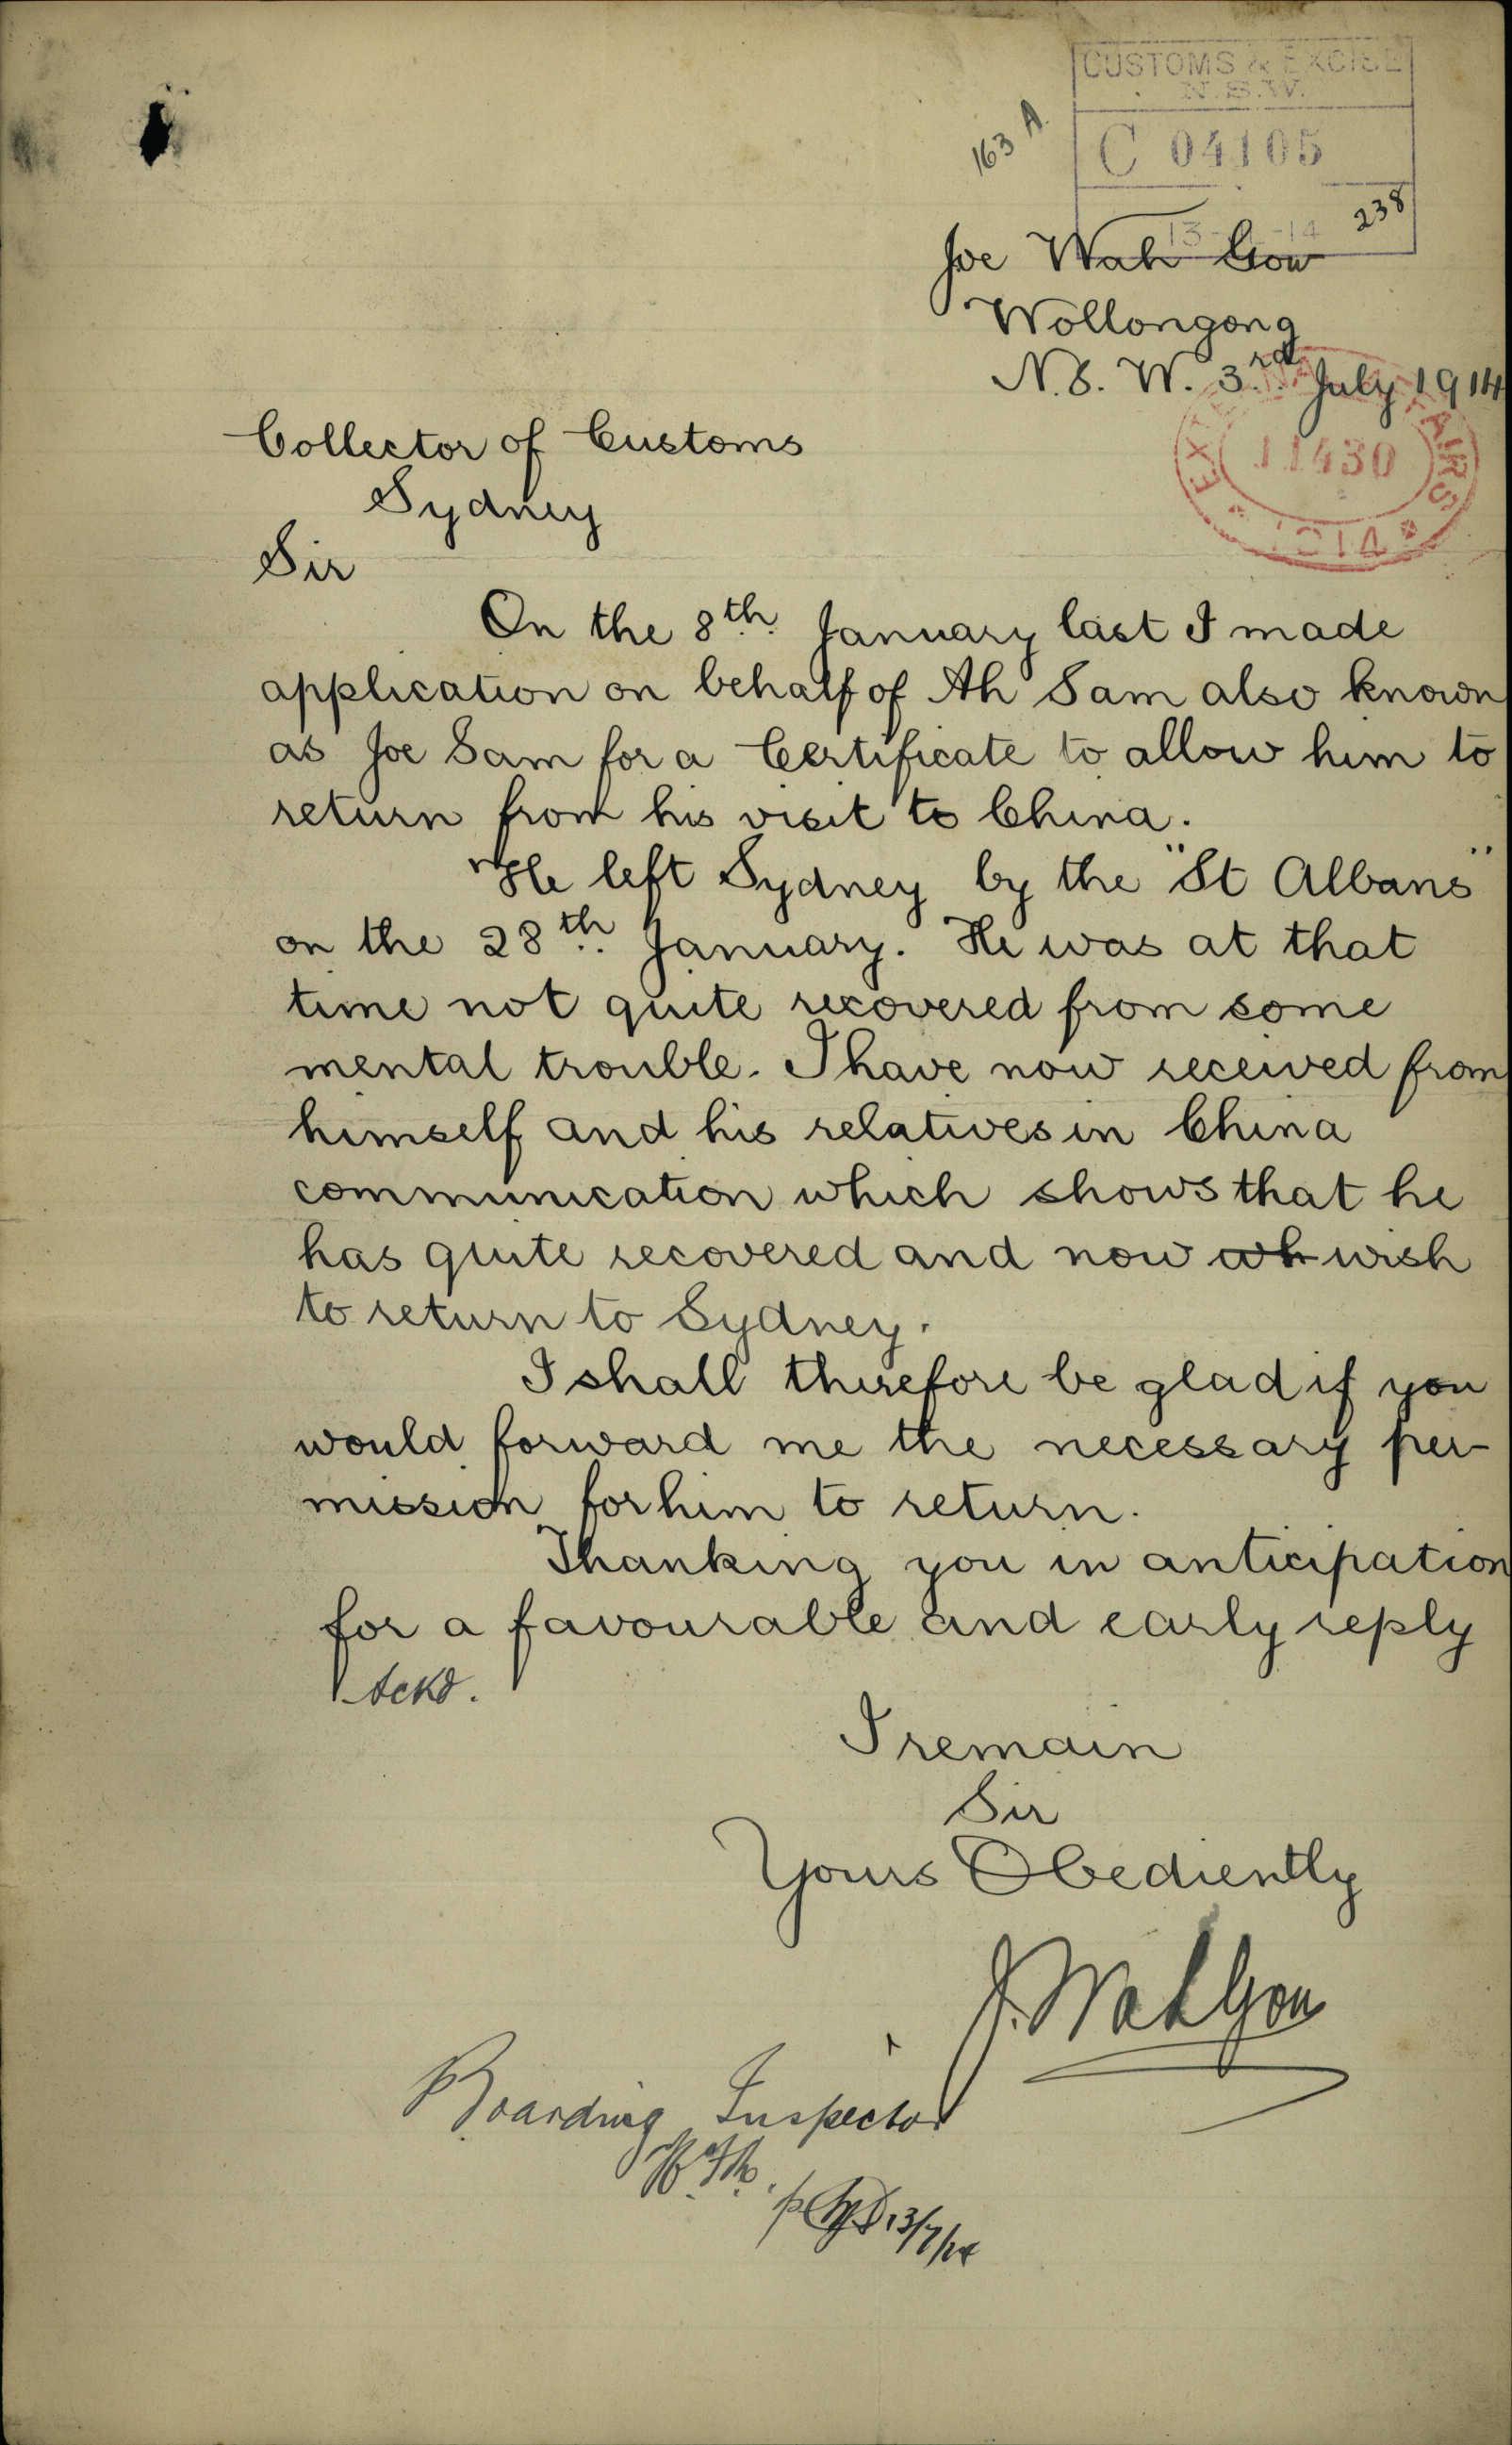 CUSTOMS & EXCISE
N.S.W.
163 A.
C 04105
238
13- -14
Joe Wah Gow
Wollongong
N.S.W. 3rd. July 1914
EXTERNAL AFFAIRS
11430
VIC.
Collector of Customs
Sydney
Sir
On the 8th. January last I made
application on behalf of Ah Sam also known
as Joe Sam for a Certificate to allow him to
return from his visit to China.
He left Sydney by the "St Albans"
on the 28th. January. He was at that
time not quite recovered from some
mental trouble. I have now received from
himself and his relatives in China
communication which shows that he
has quite recovered and now wh wish
to return to Sydney.
I shall therefore be glad if you
would forward me the necessary per-
mission for him to return.
Thanking you in anticipation
for a favourable and early reply
Ackd.
I remain
Sir
Yours Obediently
J. Wah Gow
Boarding Inspector
13/7/14